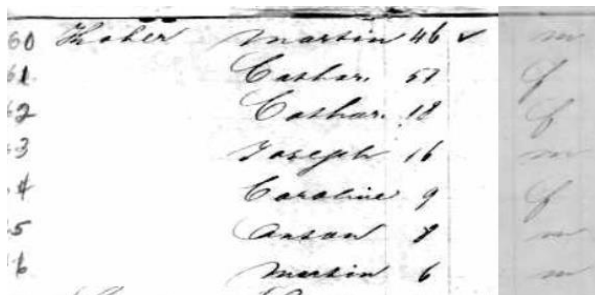 60 Thoher Martin 46 ✓ m
61 Cathar. 57 f
62 Cathar. 18 f
3 Joseph 16 m
4 Caroline 9 f
5 Anton 8 m
6 Martin 6 m